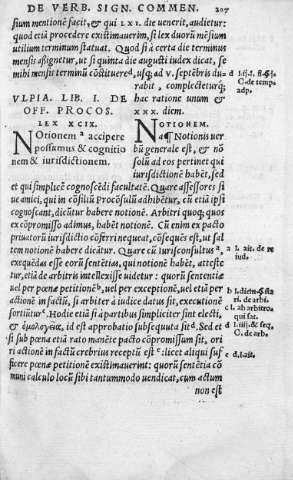 DE VERB. SIGN. COMMEN. 207
sium mentionē facit, & qui LXI. die uenerit, audietur:
quod etiā procedere existimauerim, si lex duorū mēsium
utilium terminum statuat. Quod si à certa die terminus
mensis aßignetur, ut si quinta die augusti iudex dicat, se
mihi mensis terminū cōstituere, usq; ad v. septēbris du-
rabit, complecteturq;
hac ratione unum &
XXX. diem.
VLPIA. LIB. I. DE
OFF. PROCOS.
LEX XCIX.
Notionem accipere
possumus & cognitio
nem & iurisdictionem.
NOTIONEM.
Notionis uer
bū generale est, & nō
solū ad eos pertinet qui
iurisdictionē habēt, sed
et qui simplicē cognoscēdi facultatē. Quare assessores si
ue amici, qui in cōsiliū Procōsulū adhibētur, cū etiā ipsi
cognoscant, dicūtur habere notionē. Arbitri quoq; quos
ex cōpromisso adimus, habēt notionē. Cū enim ex pacto
priuatorū iurisdictio cōferri nequeat, cōsequēs est, ut sal
tem notionē habere dicātur. Quare cū iurisconsultus,
exequēdas esse eorū sentētias, qui notionē habēt, atteste-
tur, etiā de arbitris intellexisse uidetur: quorū sententiæ
uel per pœnæ petitionē, uel per exceptionē, uel etiā per
actionē in factū, si arbiter à iudice datus sit, executionē
sortiūtur. Hodie etiā si à partibus simpliciter sint electi,
& ὁμολογείας, id est approbatio subsequuta sit. Sed et
si sub pœna etiā rato manēte pacto cōpromissum sit, ori
ri actionē in factū crebrius receptū est: licet aliqui suf
ficere pœnæ petitionē existimauerint: quorū sentētia cō
muni calculo locū sibi tantummodo uendicat, cum actum
non est
C. de temp.
adp.
a l. ait. de re
iud.
de arbi.
c l. ab arbitro.
qui sat.
C. de arb.
e d. l. ait.